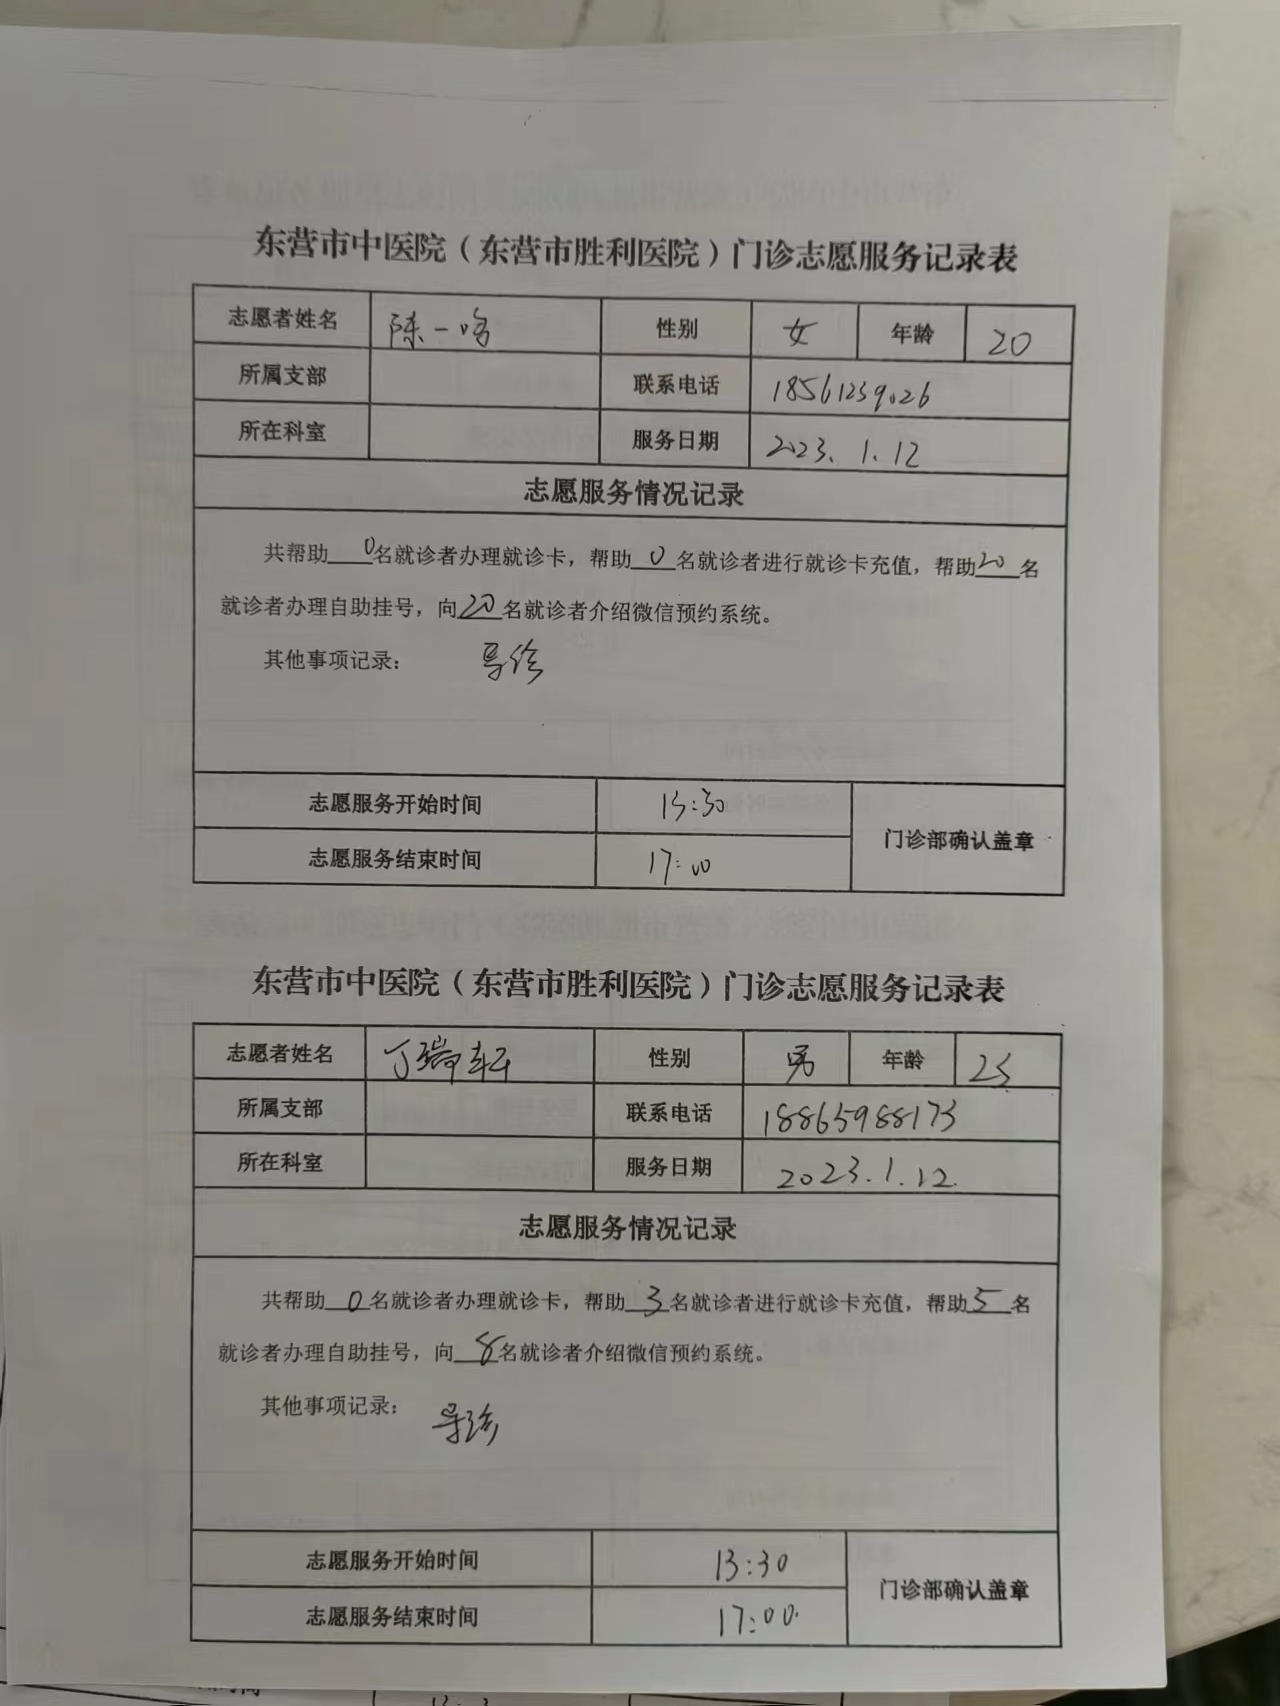 东营市中医院（东营市胜利医院）门诊志愿服务记录表
志愿者姓名 陈一鸣 性别 女 年龄 20
所属支部 联系电话 18561239026
所在科室 服务日期 2023.1.12
志愿服务情况记录
共帮助0名就诊者办理就诊卡，帮助0名就诊者进行就诊卡充值，帮助20名
就诊者办理自助挂号，向20名就诊者介绍微信预约系统。
其他事项记录： 导诊
志愿服务开始时间 13:30
门诊部确认盖章
志愿服务结束时间 17:00
东营市中医院（东营市胜利医院）门诊志愿服务记录表
志愿者姓名 丁瑞轩 性别 男 年龄 23
所属支部 联系电话 18865988173
所在科室 服务日期 2023.1.12.
志愿服务情况记录
共帮助0名就诊者办理就诊卡，帮助3名就诊者进行就诊卡充值，帮助5名
就诊者办理自助挂号，向8名就诊者介绍微信预约系统。
其他事项记录： 导诊
志愿服务开始时间 13:30
门诊部确认盖章
志愿服务结束时间 17:00.